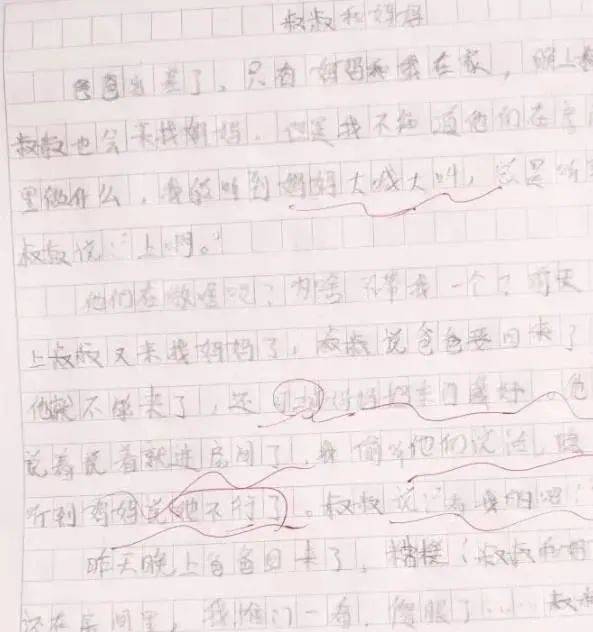 叔叔和妈妈
爸爸出差了，只有妈妈和我在家，晚上
叔叔也会来找妈妈。但是我不知道他们在房
里做什么，我能听到妈妈大喊大叫，总是听
叔叔说：“上啊。”
他们在做啥呢？为啥不带我一个？前天
上叔叔又来找妈妈了，叔叔说爸爸要回来了
他就不能来了，还 妈妈 他
说着说着就进房间了，我偷听他们说话，隐
听到妈妈说她不行了。叔叔说：看我的吧！
昨天晚上爸爸回来了，糟糕！叔叔和妈
还在房间里，我推门一看，傻眼了……叔叔